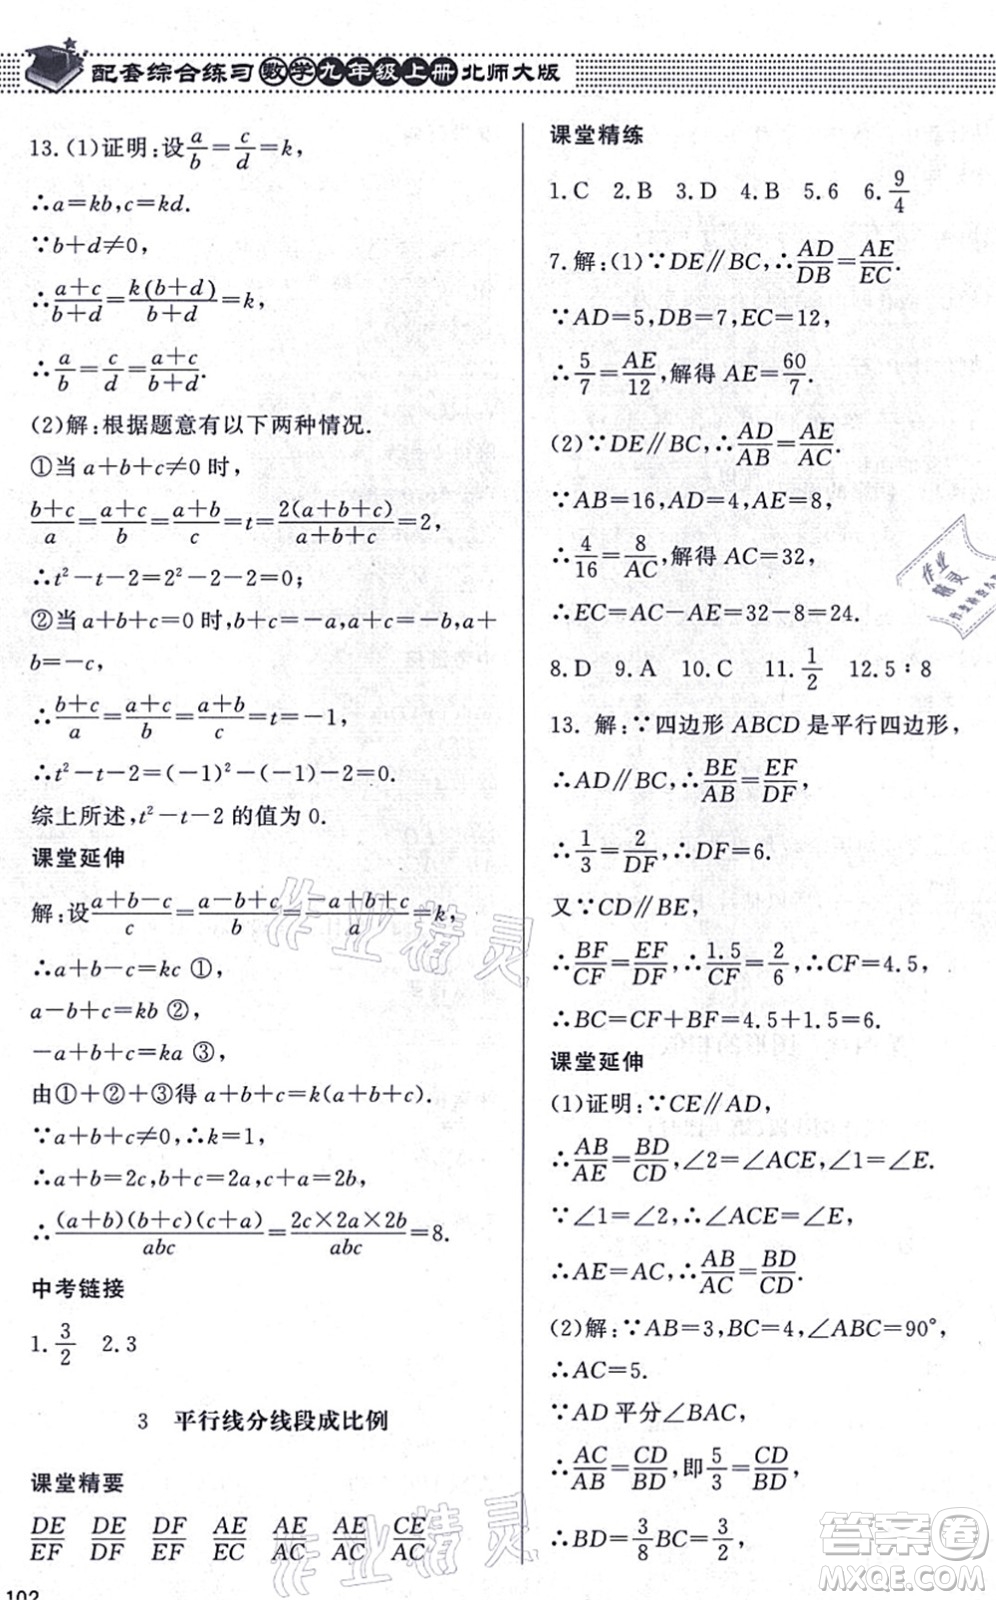 配套综合练习 数学九年级上册 北师大版
13.(1)证明:设a/b=c/d=k,
∴a=kb,c=kd.
∵b+d≠0,
∴(a+c)/(b+d)=k(b+d)/(b+d)=k,
∴a/b=c/d=(a+c)/(b+d).
(2)解:根据题意有以下两种情况.
①当a+b+c≠0时,
(b+c)/a=(a+c)/b=(a+b)/c=t=2(a+b+c)/(a+b+c)=2,
∴t²-t-2=2²-2-2=0;
②当a+b+c=0时,b+c=-a,a+c=-b,a+
b=-c,
∴(b+c)/a=(a+c)/b=(a+b)/c=t=-1,
∴t²-t-2=(-1)²-(-1)-2=0.
综上所述,t²-t-2的值为0.
课堂延伸
解:设(a+b-c)/c=(a-b+c)/b=(-a+b+c)/a=k,
∴a+b-c=kc ①,
a-b+c=kb ②,
-a+b+c=ka ③,
由①+②+③得a+b+c=k(a+b+c).
∵a+b+c≠0,∴k=1,
∴a+b=2c,b+c=2a,c+a=2b,
∴(a+b)(b+c)(c+a)/abc=2c×2a×2b/abc=8.
中考链接
1.3/2 2.3
3 平行线分线段成比例
课堂精要
DE/EF DE/DF DF/EF AE/EC AE/AC AE/AC CE/AC
102
课堂精练
1.C 2.B 3.D 4.B 5.6 6.9/4
7.解:(1)∵DE∥BC,∴AD/DB=AE/EC.
∵AD=5,DB=7,EC=12,
∴5/7=AE/12,解得AE=60/7.
(2)∵DE∥BC,∴AD/AB=AE/AC.
∵AB=16,AD=4,AE=8,
∴4/16=8/AC,解得AC=32,
∴EC=AC-AE=32-8=24.
8.D 9.A 10.C 11.1/2 12.5∶8
13. 解:∵四边形ABCD是平行四边形,
∴AD∥BC,∴BE/AB=EF/DF,
∴1/3=2/DF,∴DF=6.
又∵CD∥BE,
∴BF/CF=EF/DF,∴1.5/CF=2/6,∴CF=4.5,
∴BC=CF+BF=4.5+1.5=6.
课堂延伸
(1)证明:∵CE∥AD,
∴AB/AE=BD/CD,∠2=∠ACE,∠1=∠E.
∵∠1=∠2,∴∠ACE=∠E,
∴AE=AC,∴AB/AC=BD/CD.
(2)解:∵AB=3,BC=4,∠ABC=90°,
∴AC=5.
∵AD平分∠BAC,
∴AC/AB=CD/BD,即5/3=CD/BD,
∴BD=3/8BC=3/2,
作业精灵
作业精灵
作业精灵
答案圈
MXQE.COM